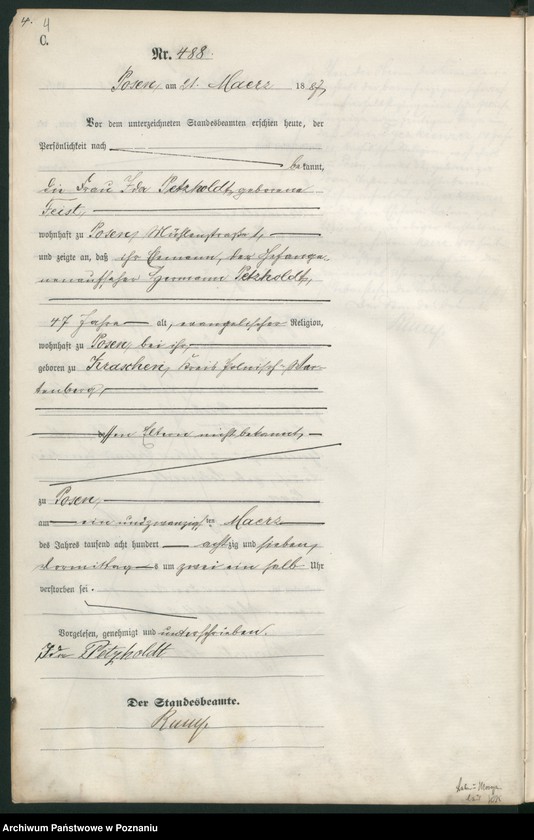 4. 4
C.
Nr. 488.
Posen, am 21. Maerz 1887
Vor dem unterzeichneten Standesbeamten erschien heute, der
Persönlichkeit nach
bekannt,
die Frau Ida Petzholdt, geborene
Feist,
wohnhaft zu Posen, Mühlenstraße 1,
und zeigte an, daß ihr Ehemann, der Gefange-
nenaufseher Hermann Petzholdt,
47 Jahre alt, evangelischer Religion,
wohnhaft zu Posen, bei ihr,
geboren zu Kraschen, Kreis Polnisch-War-
tenberg,
dessen Eltern nicht bekannt,
zu Posen,
am ein und zwanzigsten Maerz
des Jahres tausend acht hundert achtzig und sieben,
Vormittags um zwei ein halb Uhr
verstorben sei.
Vorgelesen, genehmigt und unterschrieben.
Ida Petzholdt
Der Standesbeamte.
Archiwum Państwowe w Poznaniu